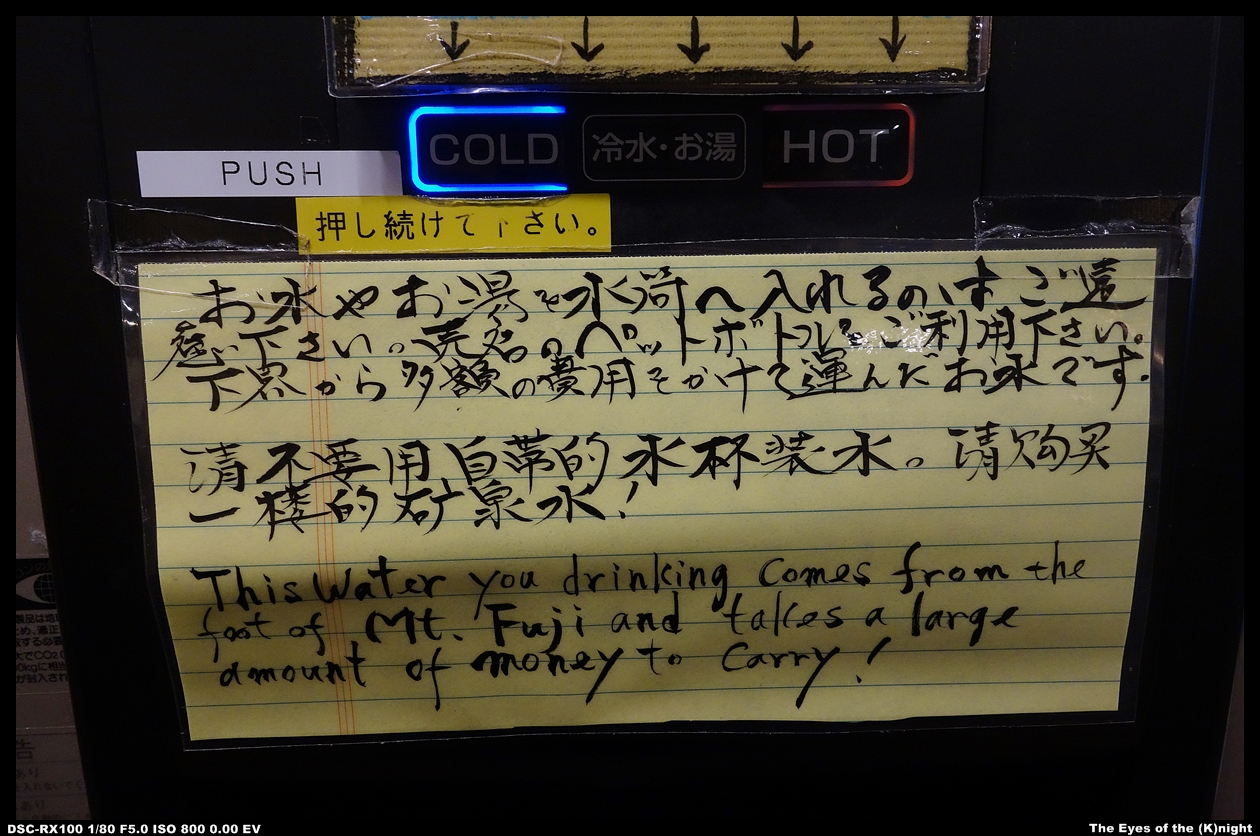 COLD 冷水・お湯 HOT
PUSH
押し続けて下さい。
お水やお湯を水筒へ入れるのはご遠
慮下さい。売店のペットボトルをご利用下さい。
下界から多額の費用をかけて運んだお水です。
请不要用自带的水杯装水。请购买
一楼的矿泉水!
This Water you drinking comes from the
foot of Mt. Fuji and takes a large
amount of money to carry!
DSC-RX100 1/80 F5.0 ISO 800 0.00 EV
The Eyes of the (K)night